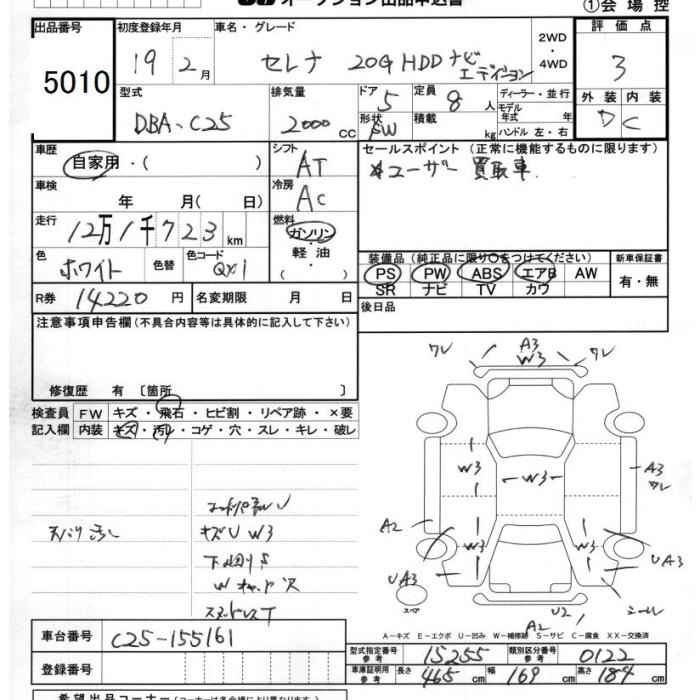 オークション出品申込書
①会場控
出品番号 初度登録年月 車名・グレード 2WD・4WD 評価点
5010 19 2月 セレナ 20G HDDナビエディション 3
型式 排気量 ドア 5 定員 8人 ディーラー・並行 外装 内装
DBA-C25 2000 CC 形状 FW 積載 kg モデル年式 年 ハンドル 左・右 D C
車歴 自家用・( ) シフト AT セールスポイント (正常に機能するものに限ります)
*ユーザー買取車
車検 年 月( 日) 冷房 AC
走行 12万1千723km 燃料 ガソリン・軽油・
色 ホワイト 色替 色コード QX1 装備品 (純正品に限り○をつけてください) 新車保証書
PS PW ABS エアB AW 有・無
SR ナビ TV カワ
R券 14220円 名変期限 月 日 後日品
注意事項申告欄 (不具合内容等は具体的に記入して下さい)
修復歴 有 [箇所 ]
検査員 FW キズ・飛石・ヒビ割・リペア跡・×要
記入欄 内装 キズ・汚レ・コゲ・穴・スレ・キレ・破レ
A3
ワレ W3 ワレ
W3 W3 A3
ワレ
A2 W3 W3
UA3 UA3
スペア U2 シール
A2
天バリ汚レ
キズU W3
下回りS
スタッドレスT
A-キズ E-エクボ U-凹み W-補修跡 S-サビ C-腐食 XX-交換済
車台番号 C25-155161
登録番号
型式指定番号 参考 15255 類別区分番号 参考 0122
車庫証明用 参考 長さ 465cm 幅 169cm 高さ 184cm
希望出品コーナー